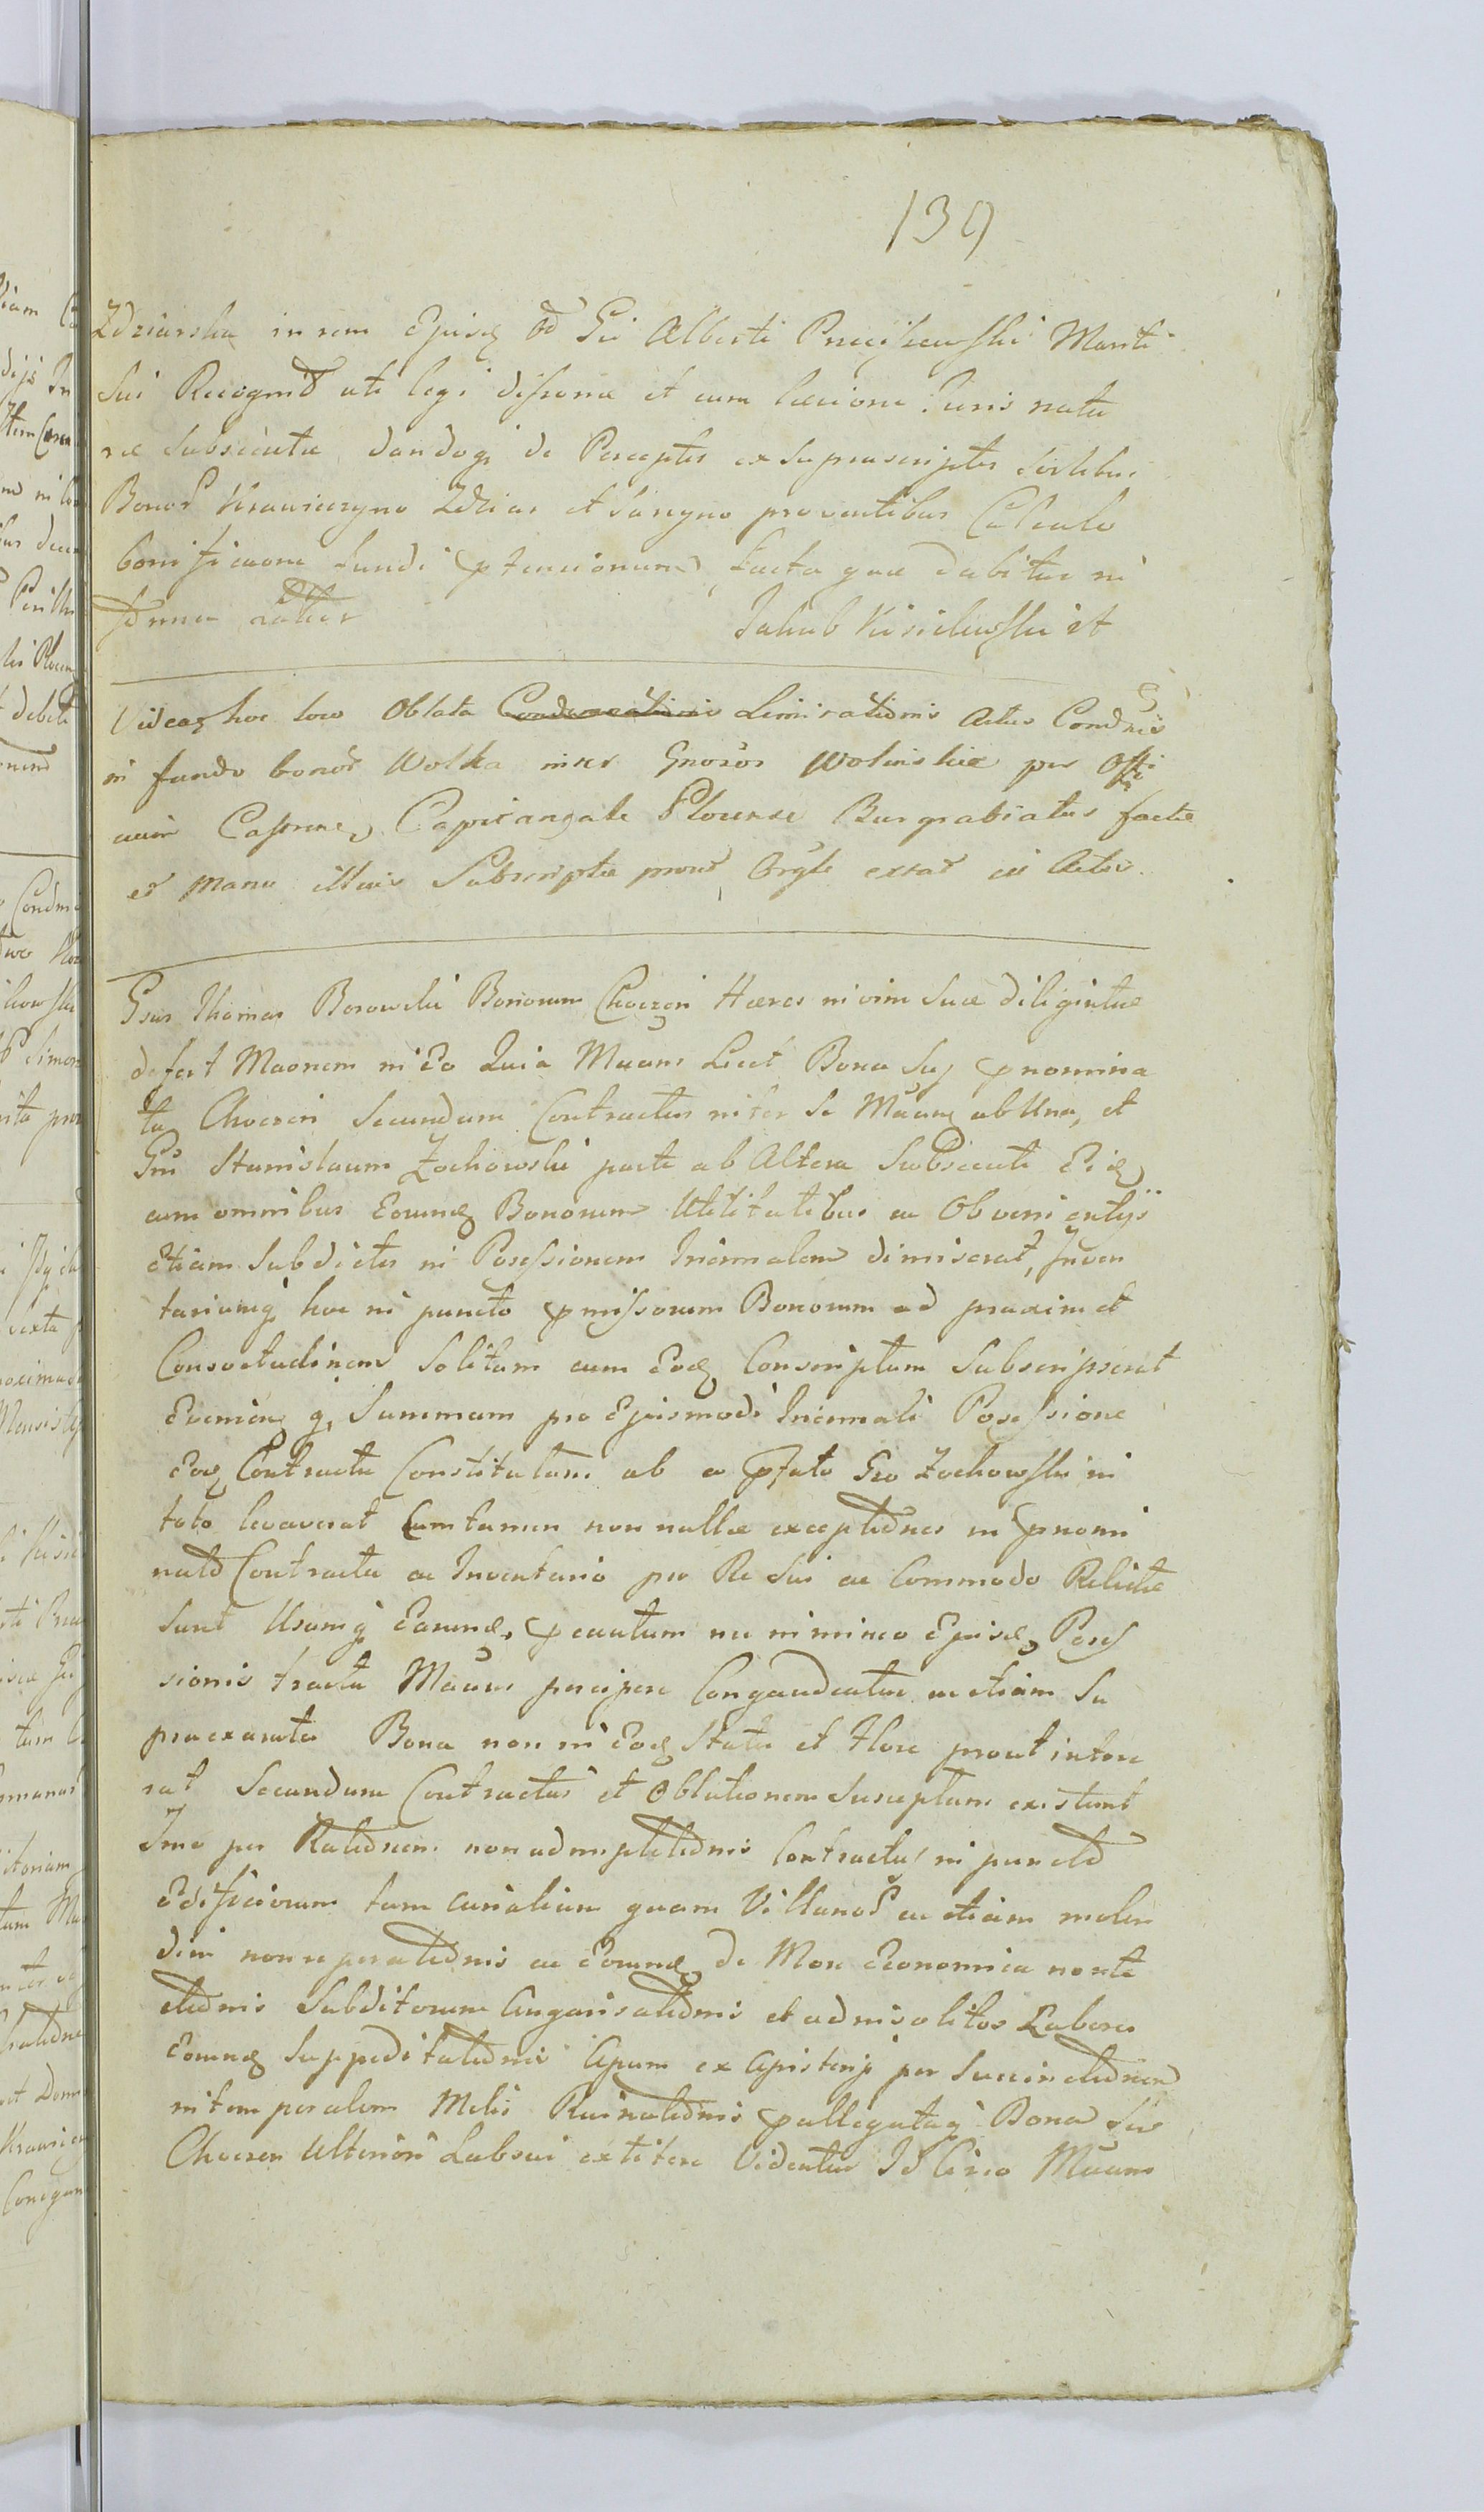 139
Zdziarska in rem Ejusq̃ Gsi Alberti Pruciszewski Mariti
sui Recognit uti legi dissonæ et cum læcione Juris natu
ræ subsecutæ dandoq̃ de Perceptis ex suprascriptis sortibus
Bonor Krawieczyno Zdziar et Łaszyno proventibus Calculo
bonificaone fundi ptensionum facta quæ dabitur in
termin latius Jakub Kisielewski et
Videaz hoc loco Oblata Condescensionis Limitationis Actus Condnis
in fundo bonor Wolka inter Gnosos Wolinskie per Offi
cium Castrense Capitangale Plocense Burgrabiatus factæ
et manu illius Subscriptæ prout Orgle extat in Actis.
Gsus Thomas Borowski Bonorum Choczen Hæres in vim suæ diligintiæ
defert Maonem in Eo Quia Mans Licet Bona sua pnomina
ta Choczen secundum Contractus inter se Manē ab Una, et
Gm Stanislaum Zochowski parte ab Altera Subsecuti Eidē
cum omnibus Eorundē Bonorum Utilitatibus ac Obvenientijs
etiam Subditis in Possessionem Triennalem dimiserat, Inven
tariumq̃ hoc in puncto pmissorum Bonorum ad praxim et
Consvetudinem solitam cum Eodē Conscriptum Subscripserat
Evenienē q̃, Summam pro Ejusmodi Triennali Possessione
Eodē Contractu Constitutam ab a pfato Gso Zochowski in
toto levaverat Cum tamen non nullæ exceptiones in pnomi
nato Contractu ac Inventario pro Re sui ac Commodo Relictæ
sunt Usumq̃ Earundē, pcautum nu in minco Ejusdē Posses
sionis tractu Mans percipere Congaudeatur ac etiam Su
praexarata Bona non in Eodē Statu et Flore prout intere
rat Secundum Contractus et Oblationem Susceptam existunt
Imo per Rationem non adimpletionis Contractus in puncto
Edificiorum tam curialium quam Villanor ac etiam molen
dini non reparationis ac Eorundē de More Economica
Subditorum Angarisationis et ad insolitos Labores
Eorundē Suppeditationis Apum ex Apisterijs per Succinctionem
intemporalem Melis Ruinationis pallegataq̃ Bona sua
Choczen Ulteriori Labsui extitere Videntur Idcirco Mans